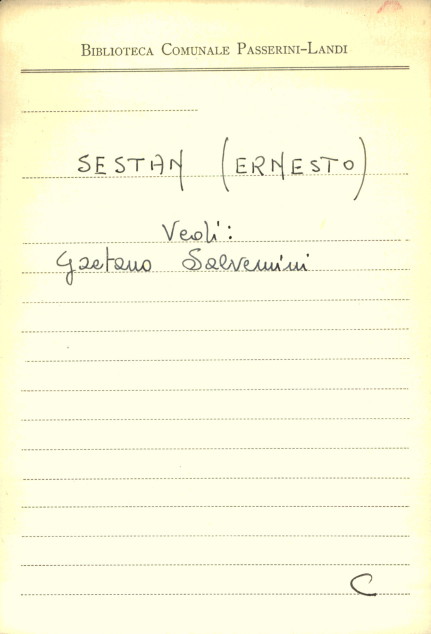 BIBLIOTECA COMUNALE PASSERINI-LANDI
SESTAN (ERNESTO)
Vedi:
Gaetano Salvemini
C